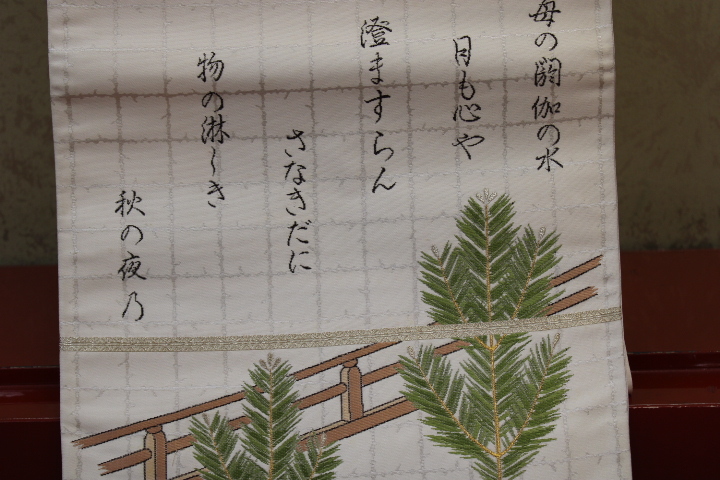 毎の閼伽の水
月も心や
澄ますらん
さなきだに
物の淋しき
秋の夜乃